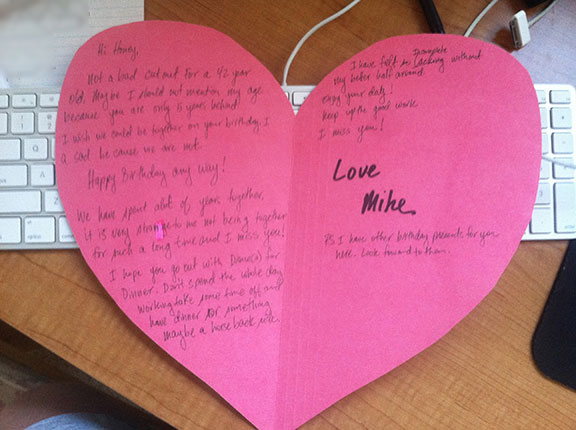 Hi Honey,
Not a bad cut out for a 42 year
old. Maybe I should not mention my age
because you are only 15 years behind
I wish we could be together on your birthday. I
a sad because we are not.
Happy Birthday any way!
We have spent alot of years together,
it is very strange to me not being together
for such a long time and I miss you!
I hope you go out with for
Dinner. Don't spend the whole day
working take some time off and
have dinner or something
maybe a horse back ride.
I have felt in Incomplete Lacking without
my better half around.
enjoy your day!
Keep up the good work
I miss you!
Love
Mike
PS I have other birthday presents for you
here. Look foward to them.